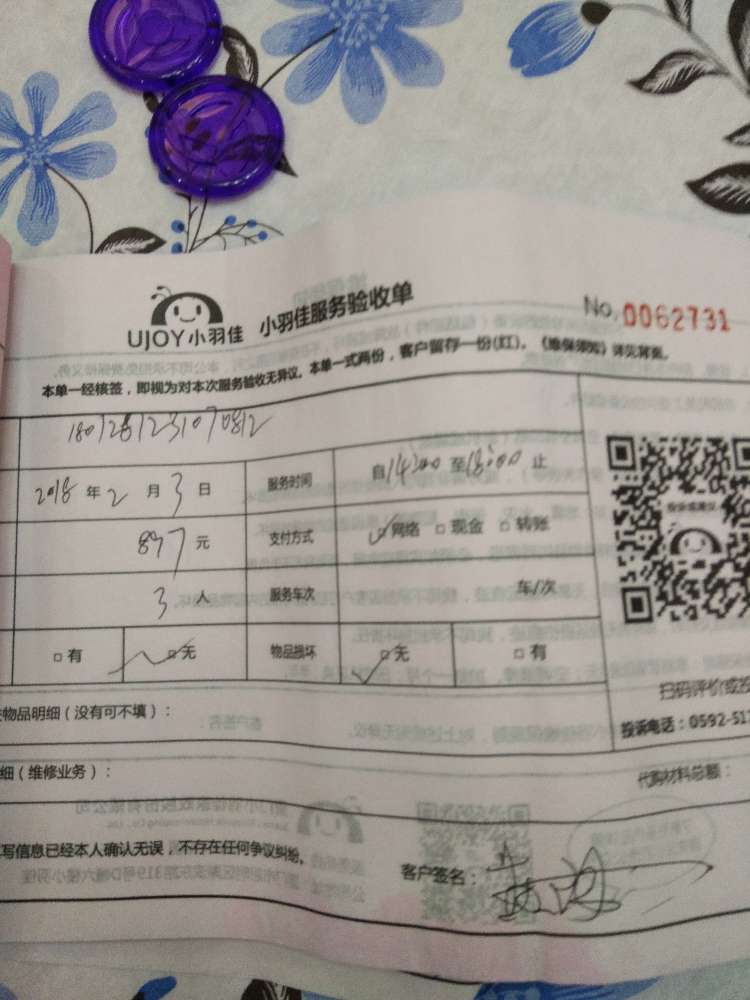 UJOY小羽佳 小羽佳服务验收单 No. 0062731
本单一经核签，即视为对本次服务验收无异议。本单一式两份，客户留存一份(红)。《维保须知》详见背面。
1801281231070812
2018 年 2 月 3 日 服务时间 自14:00 至18:00 止
897 元 支付方式 网络 □ 现金 □ 转账
3 人 服务车次 车/次
□ 有 □ 无 物品损坏 □ 无 □ 有
扫码评价或投
物品明细（没有可不填）： 投诉电话：0592-51
细（维修业务）： 代购材料总额：
写信息已经本人确认无误，不存在任何争议纠纷。 客户签名：